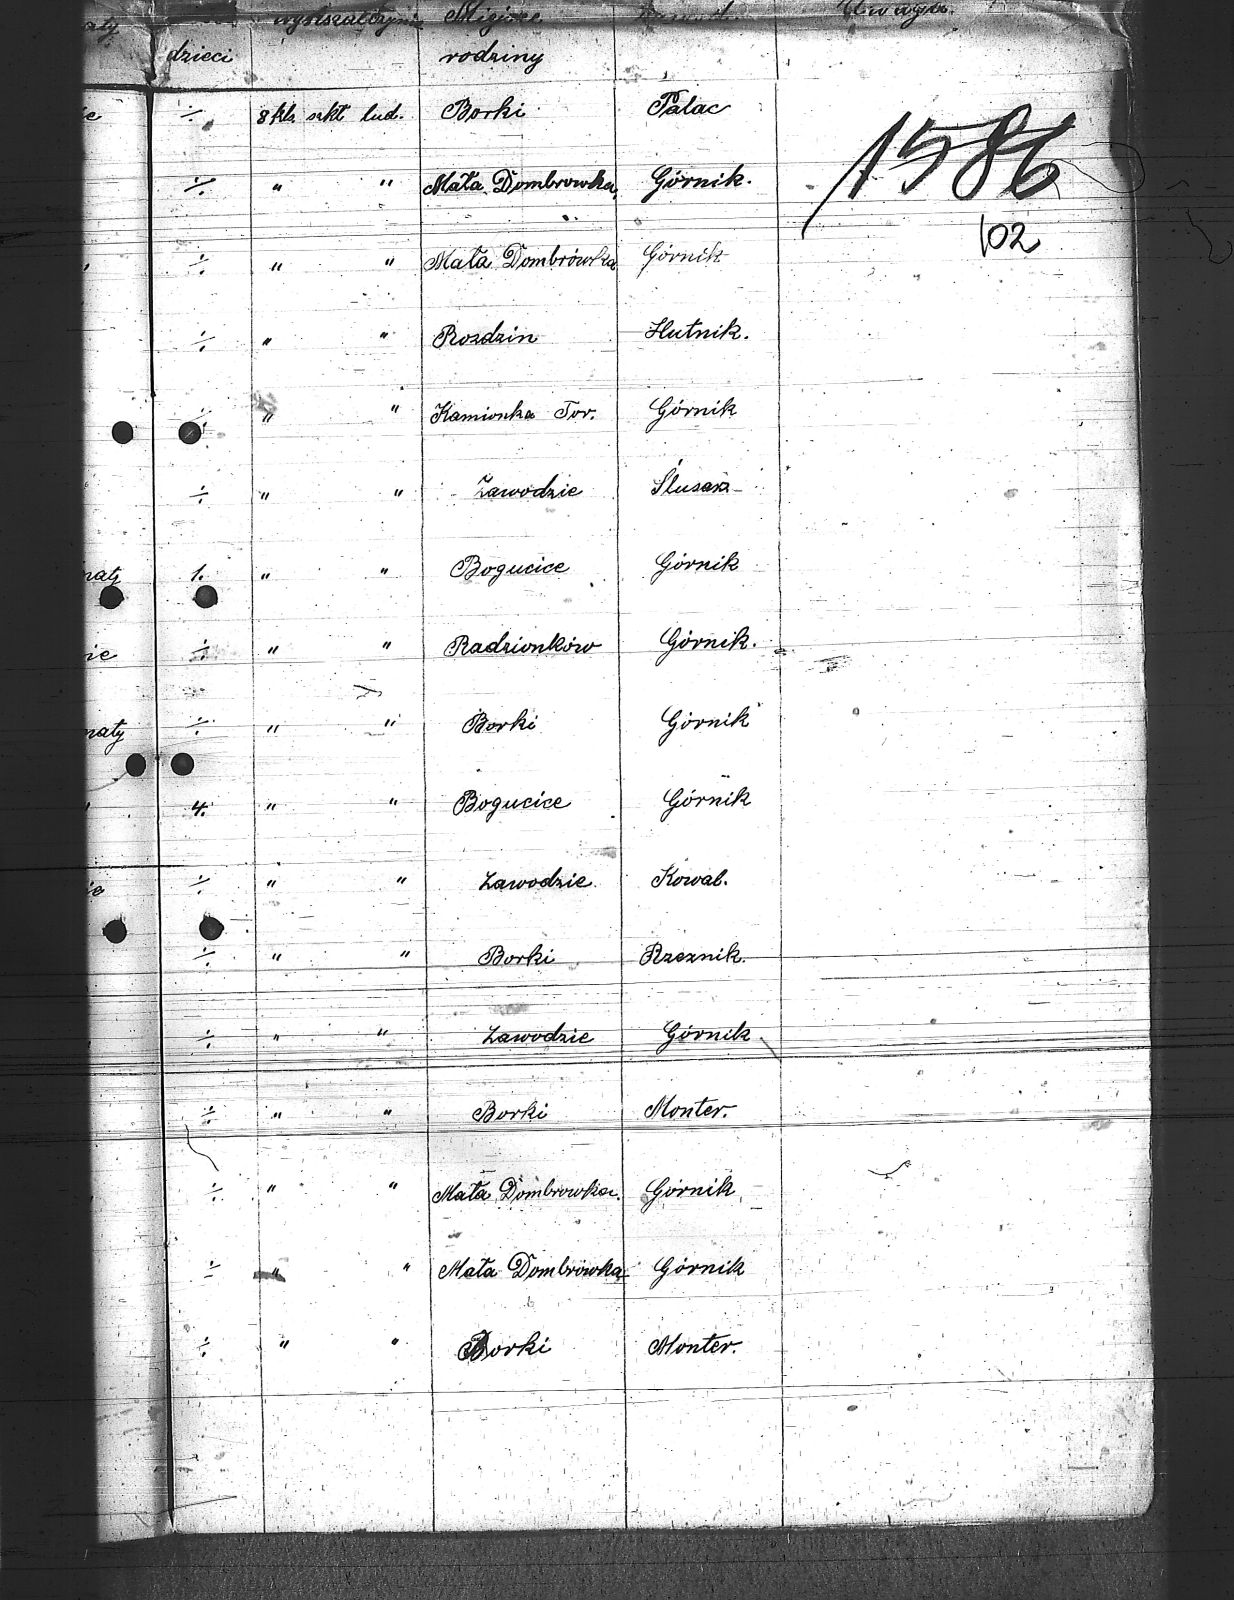 Miejsce Uwaga.
aty dzieci rodziny
ie ÷ 8 kla szkł lud. Borki Palac
÷ " " Mała Dombrowka, Górnik.
÷ " " Mała Dombrówka Górnik
÷ " " Rozdzin Hutnik.
÷ " " Kamionka Tor. Górnik
÷ " " Zawodzie Ślusarz
naty 1. " " Bogucice Górnik
ie ÷ " " Radzionków Górnik.
naty ÷ " " Borki Górnik
" 4. " " Bogucice Górnik
ie ÷ " " Zawodzie Kowal.
÷ " " Borki Rzeznik.
÷ " " Zawodzie Górnik
÷ " " Borki Monter.
÷ " " Mała Dombrowka. Górnik
÷ " " Mała Dombrówka Górnik
÷ " " Borki Monter.
1586
102